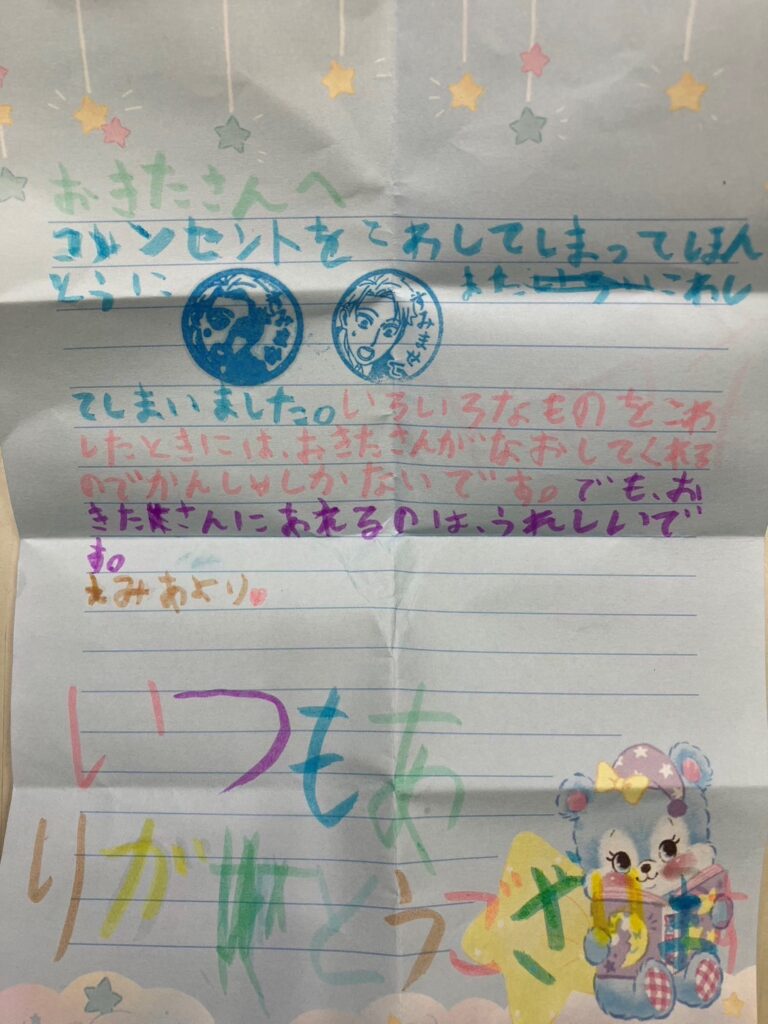 おきたさんへ
コンセントをこわしてしまってほん
とうに
また こわし
てしまいました。いろいろなものをこわ
したときには、おきたさんがなおしてくれる
のでかんしゃしかないです。でも、お
きたさんにあえるのは、うれしいで
す。
えみありより♥
いつもあ
りがとうござ
います